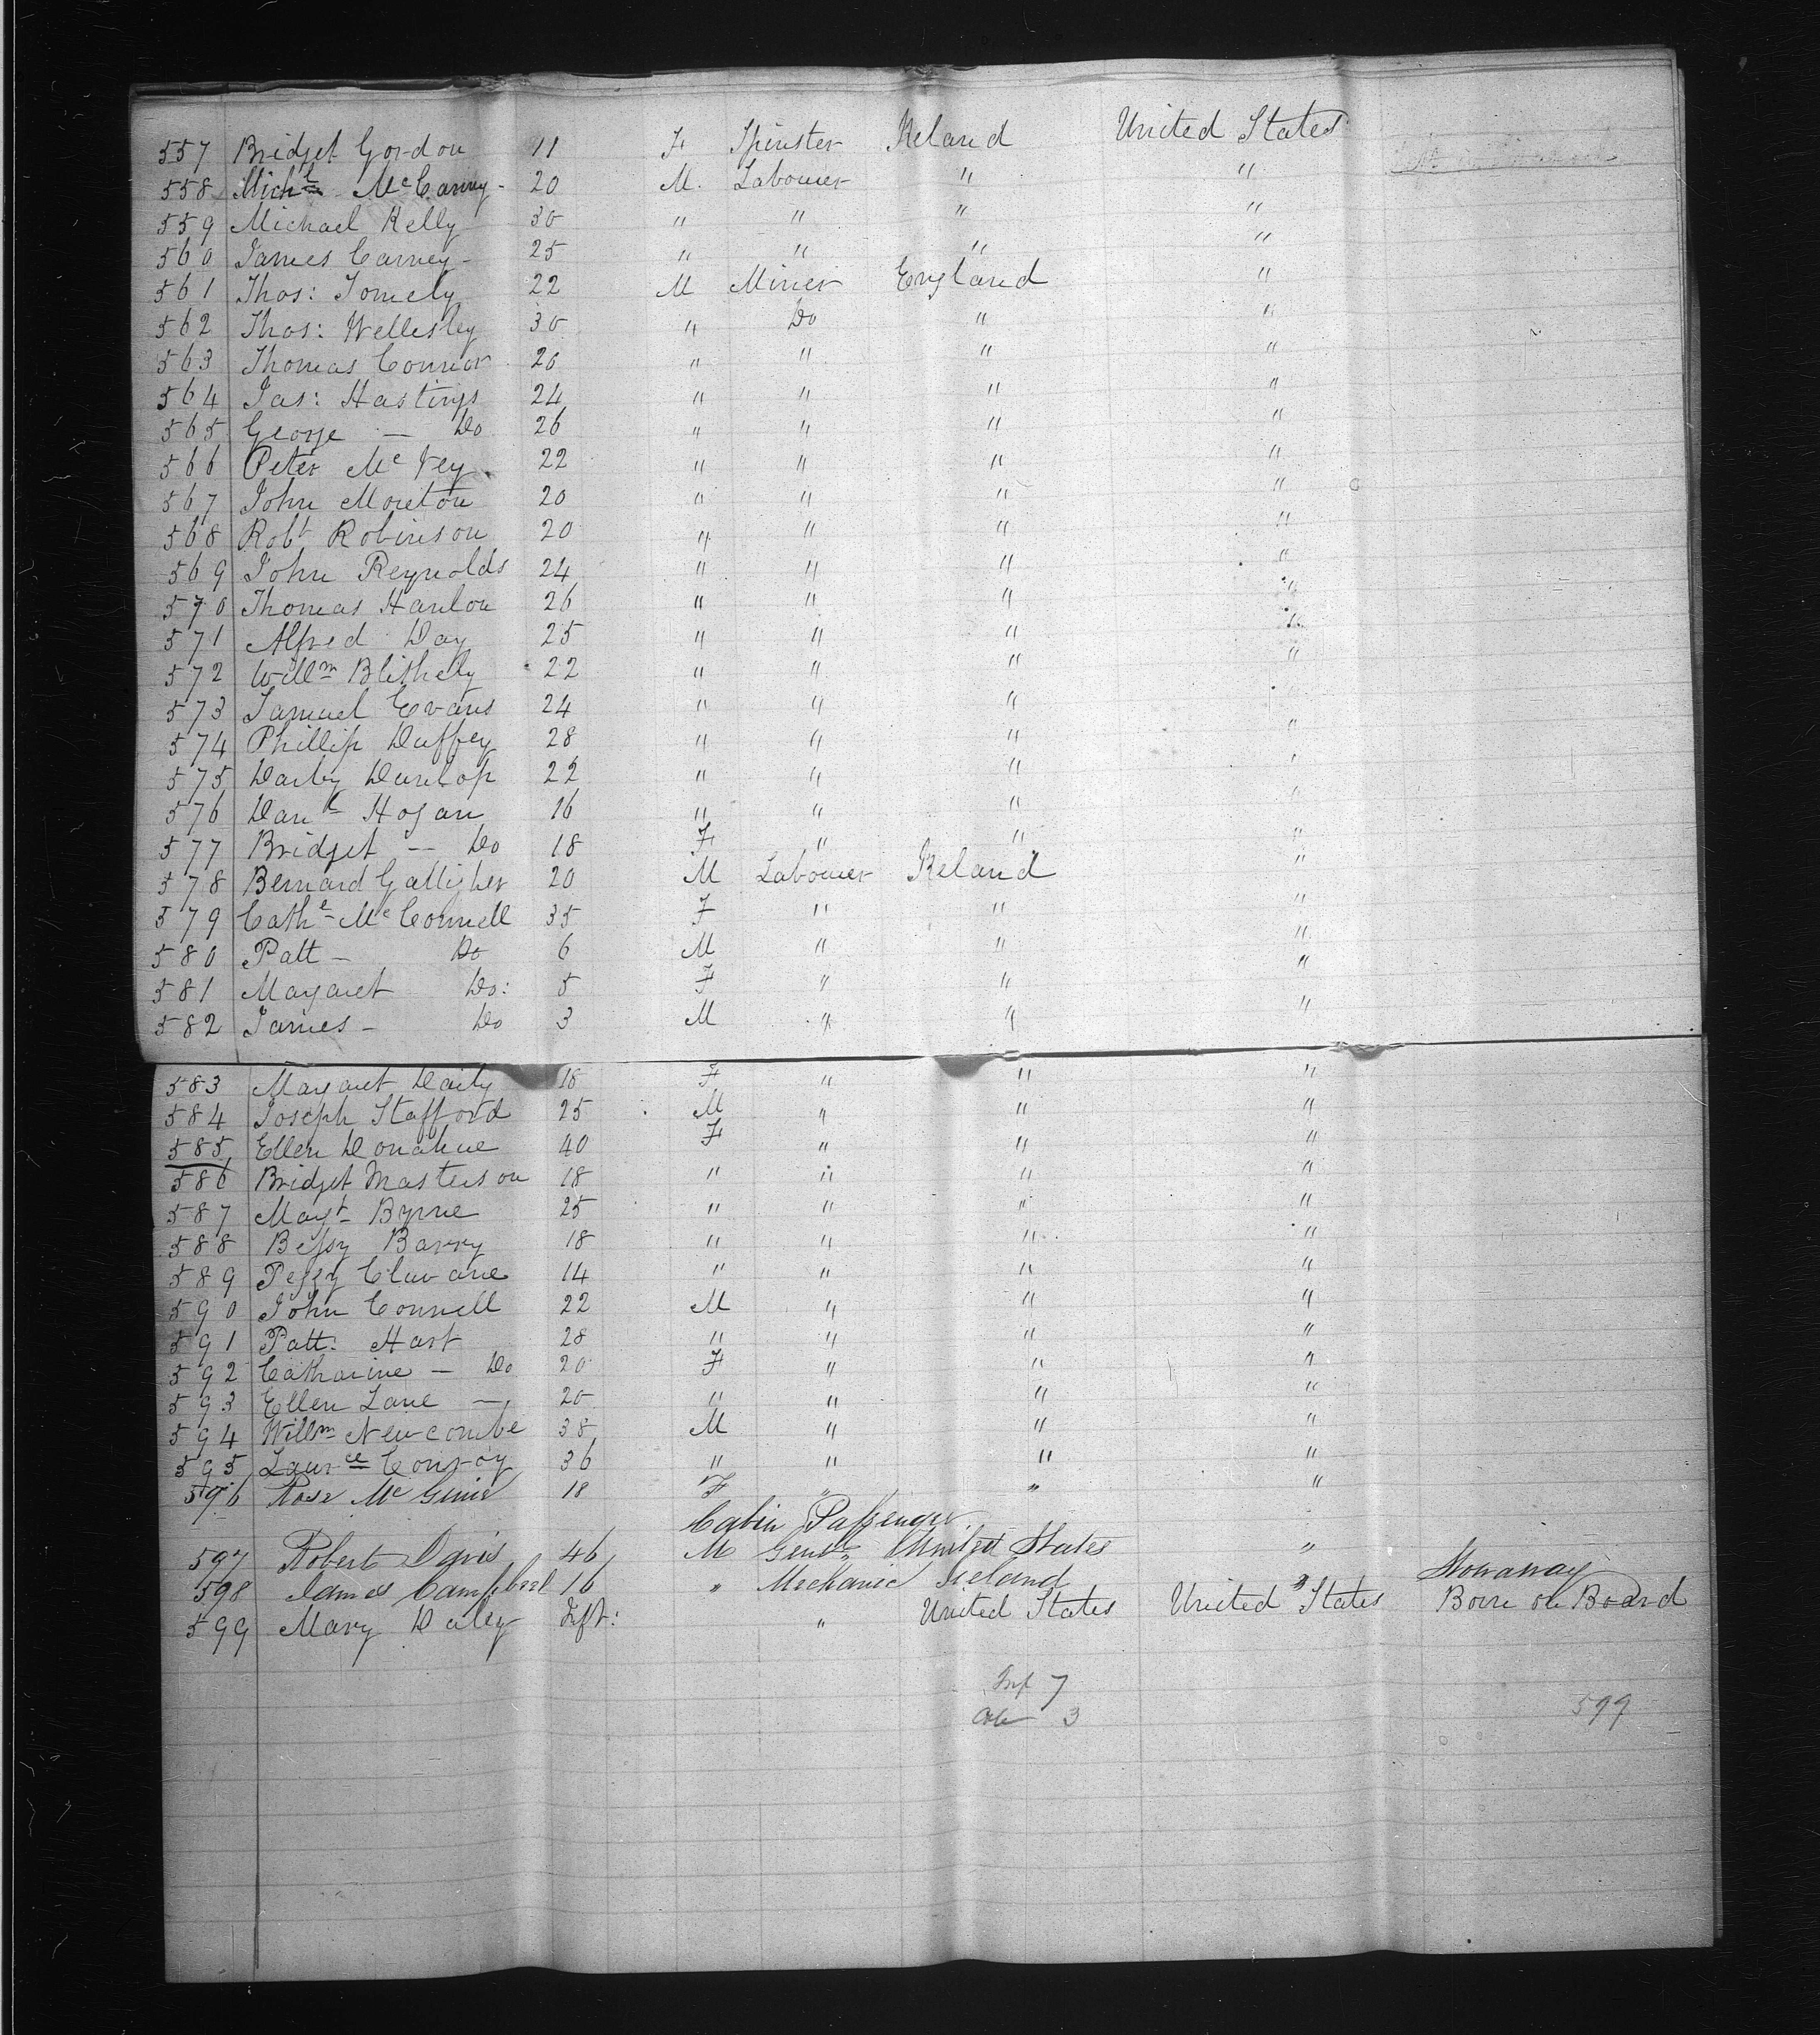 557 Bridget Gordon 11 F Spinster Ireland United States
558 Michl McCarney - 20 M. Labourer " "
559 Michael Kelly 30 " " " "
560 James Carney - 25 " " " "
561 Thos: Tomely 22 M Miner England "
562 Thos: Wellesley 30 " Do " "
563 Thomas Connor 20 " " " "
564 Jas: Hastings 24 " " " "
565 George — Do 26 " " " "
566 Peter McVey 22 " " " "
567 John Moreton 20 " " " "
568 Robt Robinson 20 " " " "
569 John Reynolds 24 " " " "
570 Thomas Hanlon 26 " " " "
571 Alfred Day 25 " " " "
572 Willm Blithely 22 " " " "
573 Samuel Evans 24 " " "
574 Phillip Duffey 28 " " " "
575 Darby Dunlop 22 " " " "
576 Danl Hogan 16 " " " "
577 Bridget — Do 18 F " " "
578 Bernard Galligher 20 M Labourer Ireland "
579 Cathe McConnell 35 F " " "
580 Patt — Do 6 M " " "
581 Margaret Do: 5 F " " "
582 James — Do 3 M " " "
583 Margaret Daily 18 F " " "
584 Joseph Stafford 25 M " " "
585 Ellen Donahue 40 F " " "
586 Bridget Masterson 18 " " " "
587 Magt Byrne 25 " " " "
588 Bessy Barry 18 " " " "
589 Peggy Cluvane 14 " " " "
590 John Connell 22 M " " "
591 Patt: Hart 28 " " " "
592 Catharine — Do 20 F " " "
593 Ellen Lane — 20 " " " "
594 Willm Newcombe 38 M " " "
595 Laurce Conroy 36 " " " "
596 Rose McGinis 18 F " " "
Cabin Passenger
597 Robert Davis 46 M Gentn United States "
598 James Campbell 16 " Mechanic Ireland " Stowaway
599 Mary Daley Inft: " United States United States Born on Board
Inf 7
3
599